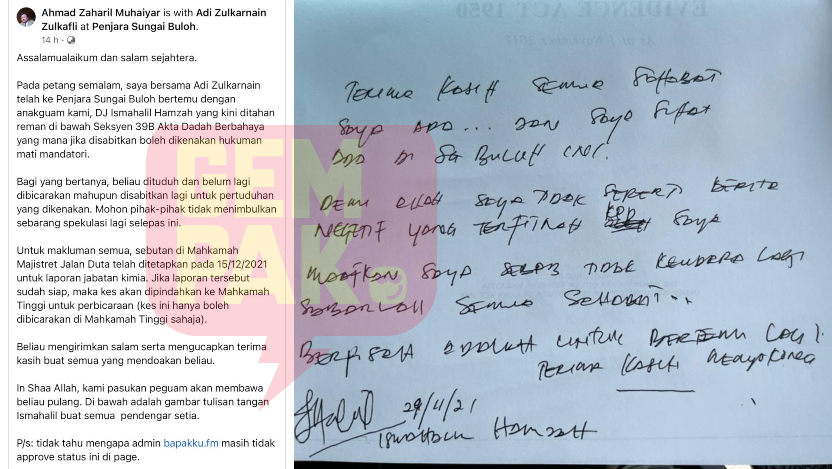 Ahmad Zaharil Muhaiyar is with Adi Zulkarnain
Zulkafli at Penjara Sungai Buloh.
14 h ·
Assalamualaikum dan salam sejahtera.
Pada petang semalam, saya bersama Adi Zulkarnain
telah ke Penjara Sungai Buloh bertemu dengan
anakguam kami, DJ Ismahalil Hamzah yang kini ditahan
reman di bawah Seksyen 39B Akta Dadah Berbahaya
yang mana jika disabitkan boleh dikenakan hukuman
mati mandatori.
Bagi yang bertanya, beliau dituduh dan belum lagi
dibicarakan mahupun disabitkan lagi untuk pertuduhan
yang dikenakan. Mohon pihak-pihak tidak menimbulkan
sebarang spekulasi lagi selepas ini.
Untuk makluman semua, sebutan di Mahkamah
Majistret Jalan Duta telah ditetapkan pada 15/12/2021
untuk laporan jabatan kimia. Jika laporan tersebut
sudah siap, maka kes akan dipindahkan ke Mahkamah
Tinggi untuk perbicaraan (kes ini hanya boleh
dibicarakan di Mahkamah Tinggi sahaja).
Beliau mengirimkan salam serta mengucapkan terima
kasih buat semua yang mendoakan beliau.
In Shaa Allah, kami pasukan peguam akan membawa
beliau pulang. Di bawah adalah gambar tulisan tangan
Ismahalil buat semua pendengar setia.
P/s: tidak tahu mengapa admin bapakku.fm masih tidak
approve status ini di page.
GEMPAK
EVIDENCE ACT 1950
As at 1 November 2012
Terima Kasih Semua Sahabat
Saya ada... dan saya sihat
ada di Sg Buluh
Demi Allah saya tidak seperti berita
negatif yang terfitnah kpd saya
Maafkan saya tidak kendera lagi
Sabarlah semua sahabat...
Berpisah adalah untuk bertemu lagi.
Terima Kasih
29/11/21
Hamzah